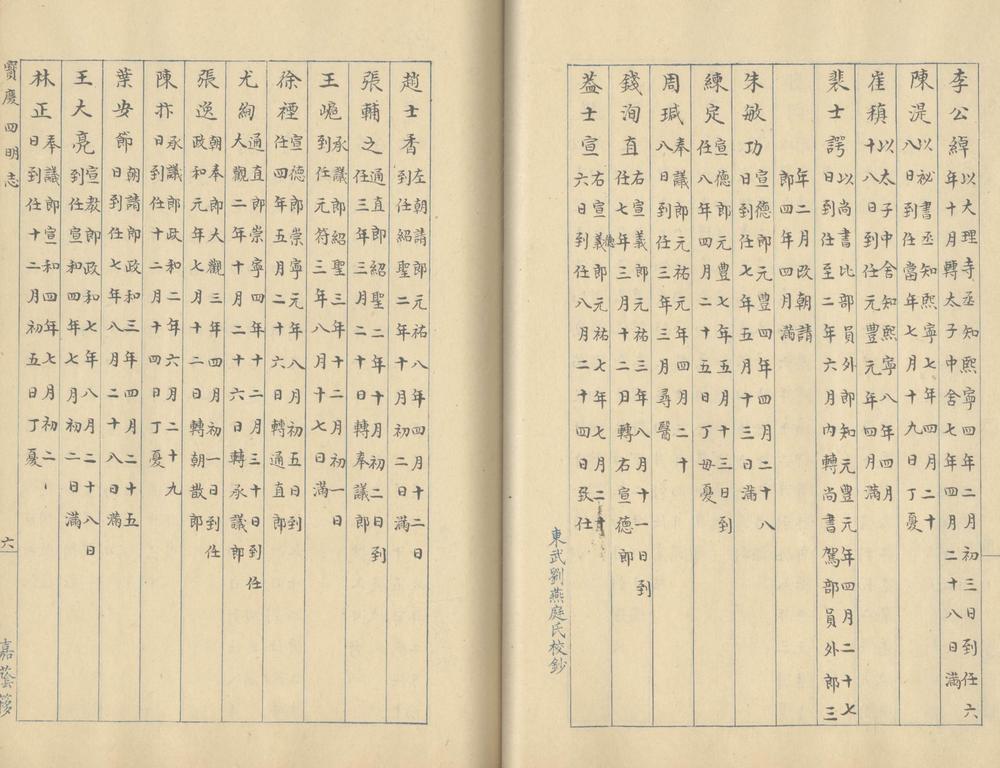 李公綽
以大理寺丞知熙寧四年二月初三日到任六
年十月轉太子中舍七年四月二十八日滿
陳湜
以祕書丞知熙寧七年四月二十
八日到任當年七月十九日丁憂
崔稹
以太子中舍知熙寧八年四月
十八日到任元豐元年四月滿
裴士諤
以尚書比部員外郎知元豐元年四月二十七
日到任至二年六月內轉尚書駕部員外郎三
年二月改朝請
郎四年四月滿
朱敏功
宣德郎元豊四年四月二十八
日到任七年五月十三日滿
練定
宣德郎元豊七年五月十三日到
任八年四月二十五日丁母憂
周瑊
奉議郎元祐元年四月二十
八日到任三年三月尋醫
錢洵直
右宣義郎元祐三年八月十一日到
任七年三月十二日轉右宣德郎
葢士宣
右宣義郎元祐七年七月二十
六日到任八年八月二十四日致仕
德
東武劉燕庭氏校鈔
趙士香
左朝請郎元祐八年四月十二日
到任紹聖二年十月初二日滿
張輔之
通直郎紹聖二年十月初二日到
任三年三月二十日轉奉議郎
王
承議郎紹聖三年十二月初一日
到任元符三年八月十七日滿
徐禋
宣德郎崇寧元年八月初五日到
任四年五月二十六日轉通直郎
尤絢
通直郎崇寧四年十二月三十日到任
大觀二年十月二十六日轉承議郎
張逸
朝奉郎大觀三年四月初一日到任
政和元年七月十二日轉朝散郎
陳抃
承議郎政和二年六月二十九
日到任十二月十四日丁憂
葉安節
朝請郎政和三年四月二十五
日到任七年八月二十八日滿
王大亮
宣教郎政和七年八月二十八日
到任宣和四年七月初二日滿
林正
奉議郎宣和四年七月初二
日到任十二月初五日丁憂
寶慶四明志
六
嘉蔭簃